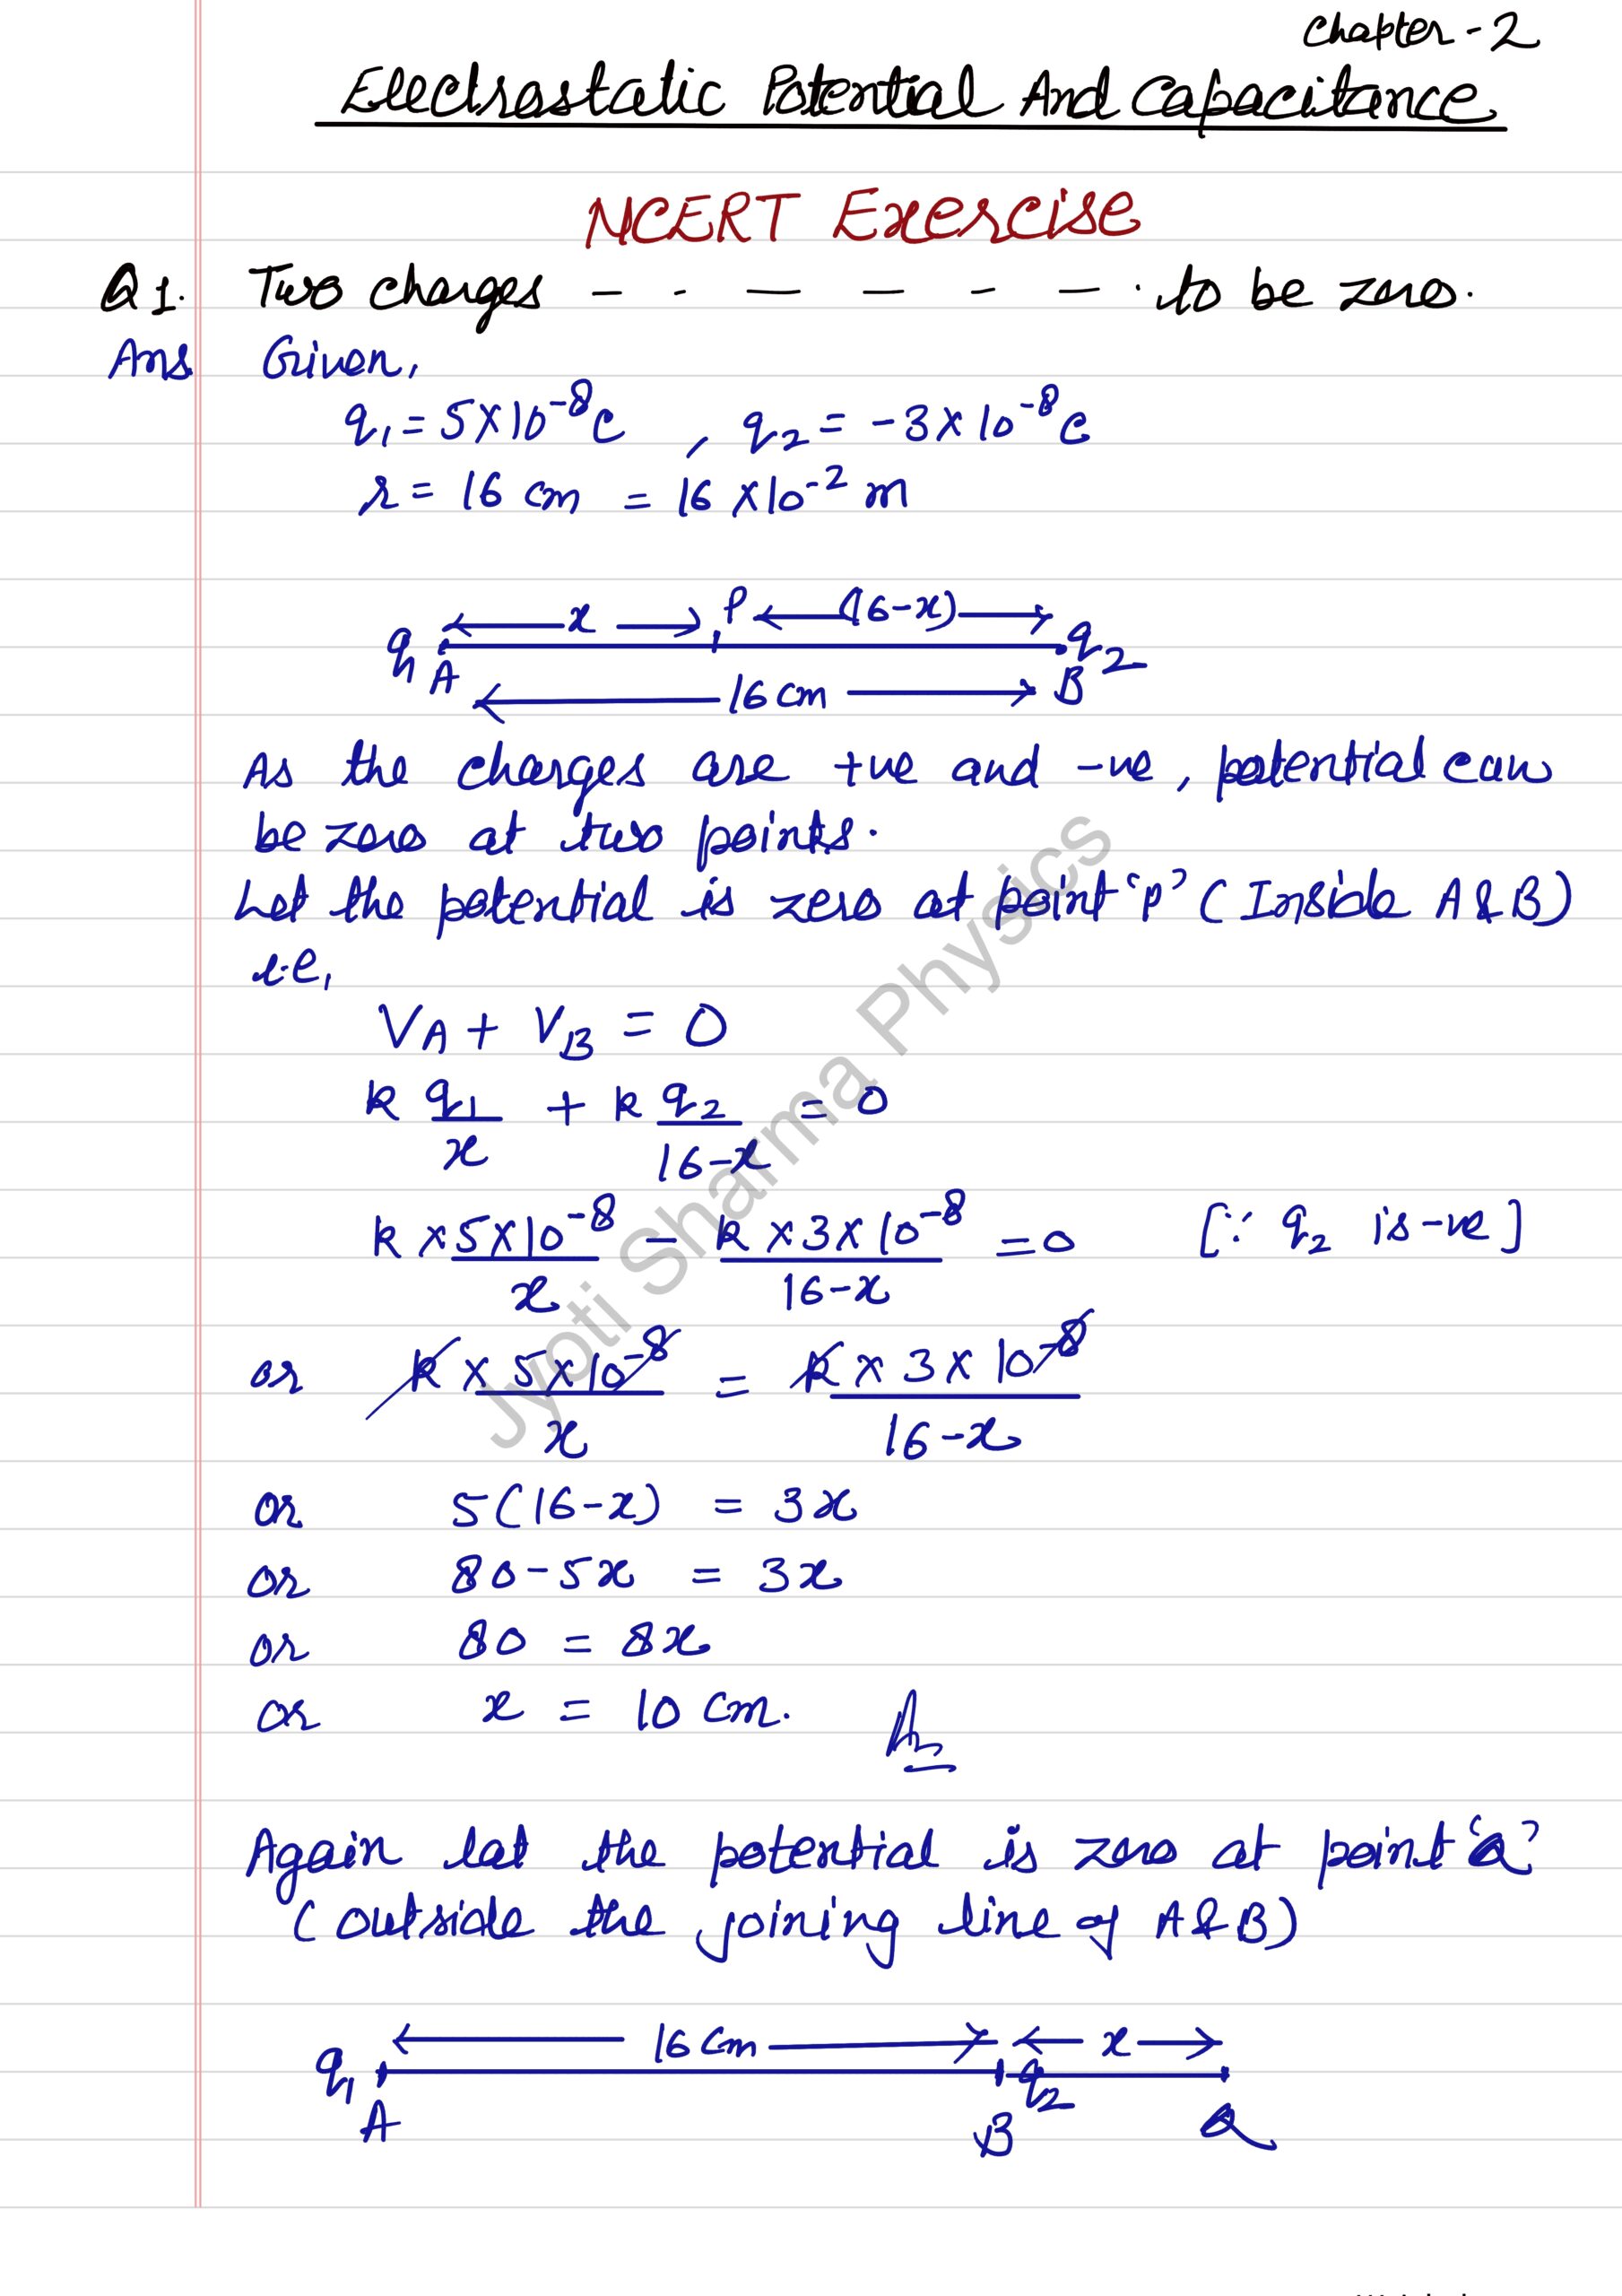 Chapter-2
Electrostatic Potential And Capacitance
NCERT Exercise
Q1. Two charges - - - - - - . to be zero.
Ans Given,
q₁ = 5×10⁻⁸C , q₂ = -3×10⁻⁸C
r = 16 cm = 16×10⁻² m
x P (16-x)
q₁ A B q₂
16 cm
As the charges are +ve and -ve, potential can
be zero at two points.
Let the potential is zero at point 'P' (Inside A&B)
i.e,
V_A + V_B = 0
k q₁/x + k q₂/16-x = 0
k×5×10⁻⁸/x - k×3×10⁻⁸/16-x = 0 [∵ q₂ is -ve]
or k×5×10⁻⁸/x = k×3×10⁻⁸/16-x
or 5(16-x) = 3x
or 80-5x = 3x
or 80 = 8x
or x = 10 cm. Ans
Again let the potential is zero at point 'Q'
(outside the joining line of A&B)
16 cm x
q₁ q₂
A B Q
Jyoti Sharma Physics